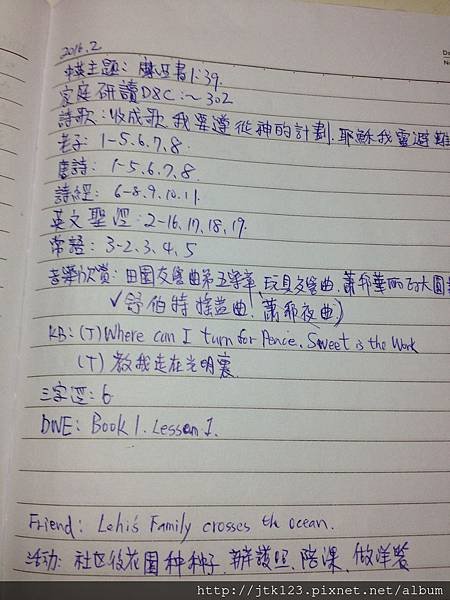 2016.2
中英主題：摩西書1:39.
家庭研讀D&C:~302
詩歌：收成歌 我要遵從神的計劃.耶穌我靈避難
老子：1-5.6.7.8.
唐詩：1-5.6.7.8.
詩經：6-8.9.10.11.
英文聖經：2-16.17.18.19.
常語：3-2.3.4.5
音樂欣賞：田園交響曲第五樂章、玩具交響曲.蕭邦華麗大圓
✓舒伯特搖籃曲.蕭邦夜曲)
KB：(T)Where can I turn for Peace. Sweet is the Work
(T) 教我走在光明裏
三字經：6
DWE：Book 1. Lesson 1.
Friend: Lehi's Family crosses the ocean.
活動：社區後花園種種子.辦護照.陪課.做洋裝
http://jtk123.pixnet.net/album
Da
No